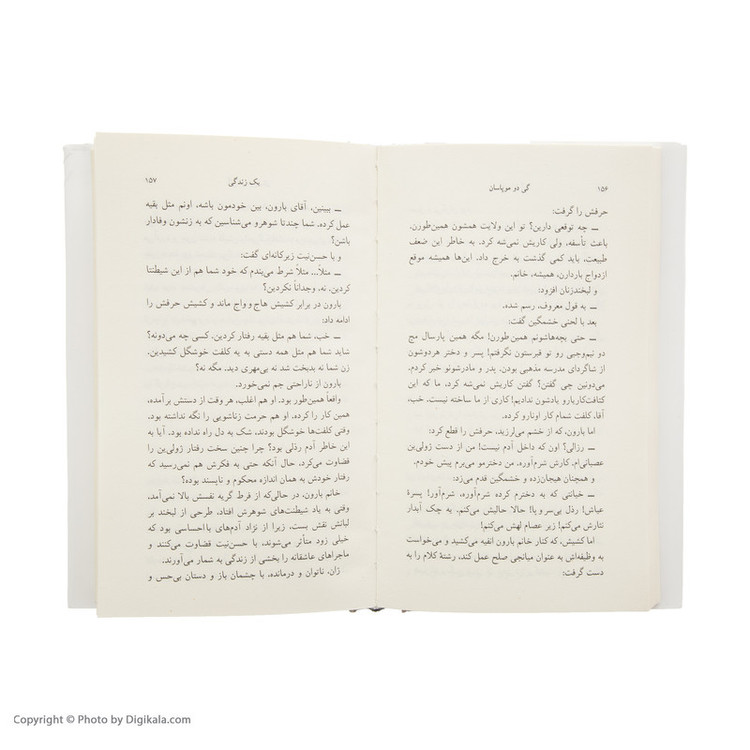 ۱۵۶
گی دو موپاسان
حرفش را گرفت:
ــ چه توقعی دارین؟ تو این ولایت همشون همین‌طورن.
باعث تأسفه، ولی کاریش نمی‌شه کرد. به خاطر این ضعف
طبیعت، باید کمی گذشت به خرج داد. این‌ها همیشه موقع
ازدواج باردارن، همیشه، خانم.
و لبخندزنان افزود:
ــ به قول معروف، رسم شده.
بعد با لحنی خشمگین گفت:
ــ حتی بچه‌هاشونم همین‌طورن! مگه همین پارسال مچ
دو نیم‌وجبی رو تو قبرستون نگرفتم! پسر و دختر هردوشون
از شاگردای مدرسه مذهبی بودن. پدر و مادرشونو خبر کردم.
می‌دونین چی گفتن؟ گفتن کاریش نمی‌شه کرد، ما که این
کثافت‌کاریارو یادشون ندادیم! کاری از ما ساخته نیست. خب،
آقا، کلفت شمام کار اونارو کرده.
اما بارون، که از خشم می‌لرزید، حرفش را قطع کرد:
ــ رزالی؟ اون که داخل آدم نیست! من از دست ژولی‌ین
عصبانی‌ام. کارش شرم‌آوره. من دخترمو می‌برم پیش خودم.
و همچنان هیجان‌زده و خشمگین قدم می‌زد:
ــ خیانتی که به دخترم کرده شرم‌آوره، شرم‌آور! پسرهٔ
عیاش! رذل بی‌سروپا! حالا حالیش می‌کنم. یه چک آبدار
نثارش می‌کنم! زیر عصام لهش می‌کنم!
اما کشیش، که کنار خانم بارون انفیه می‌کشید و می‌خواست
به وظیفه‌اش به عنوان میانجی صلح عمل کند، رشتهٔ کلام را به
دست گرفت:
یک زندگی
۱۵۷
ــ ببینین، آقای بارون، بین خودمون باشه، اونم مثل بقیه
عمل کرده. شما چندتا شوهرو می‌شناسین که به زنشون وفادار
باشن؟
و با حسن‌نیت زیرکانه‌ای گفت:
ــ مثلاً... مثلاً شرط می‌بندم که خود شما هم از این شیطنتا
کردین. نه، وجداناً نکردین؟
بارون در برابر کشیش هاج و واج ماند و کشیش حرفش را
ادامه داد:
ــ خب، شما هم مثل بقیه رفتار کردین. کسی چه می‌دونه؟
شاید شما هم مثل همه دستی به یه کلفت خوشگل کشیدین.
زن شما نه بدبخت شد نه بی‌مهری دید. مگه نه؟
بارون از ناراحتی جم نمی‌خورد.
واقعاً همین‌طور بود. او هم اغلب، هر وقت از دستش برآمده،
همین کار را کرده. او هم حرمت زناشویی را نگه نداشته بود.
وقتی کلفت‌ها خوشگل بودند، شک به دل راه نداده بود. آیا به
این خاطر آدم رذلی بود؟ چرا چنین سخت رفتار ژولی‌ین را
قضاوت می‌کرد، حال آنکه حتی به فکرش هم نمی‌رسید که
رفتار خودش به همان اندازه محکوم و ناپسند بوده؟
خانم بارون، در حالی‌که از فرط گریه نفسش بالا نمی‌آمد،
وقتی به یاد شیطنت‌های شوهرش افتاد، طرحی از لبخند بر
لبانش نقش بست، زیرا از نژاد آدم‌های بااحساسی بود که
خیلی زود متأثر می‌شوند، با حسن‌نیت قضاوت می‌کنند و
ماجراهای عاشقانه را بخشی از زندگی به شمار می‌آورند.
ژان، ناتوان و درمانده، با چشمان باز و دستان بی‌حس و
Copyright © Photo by Digikala.com